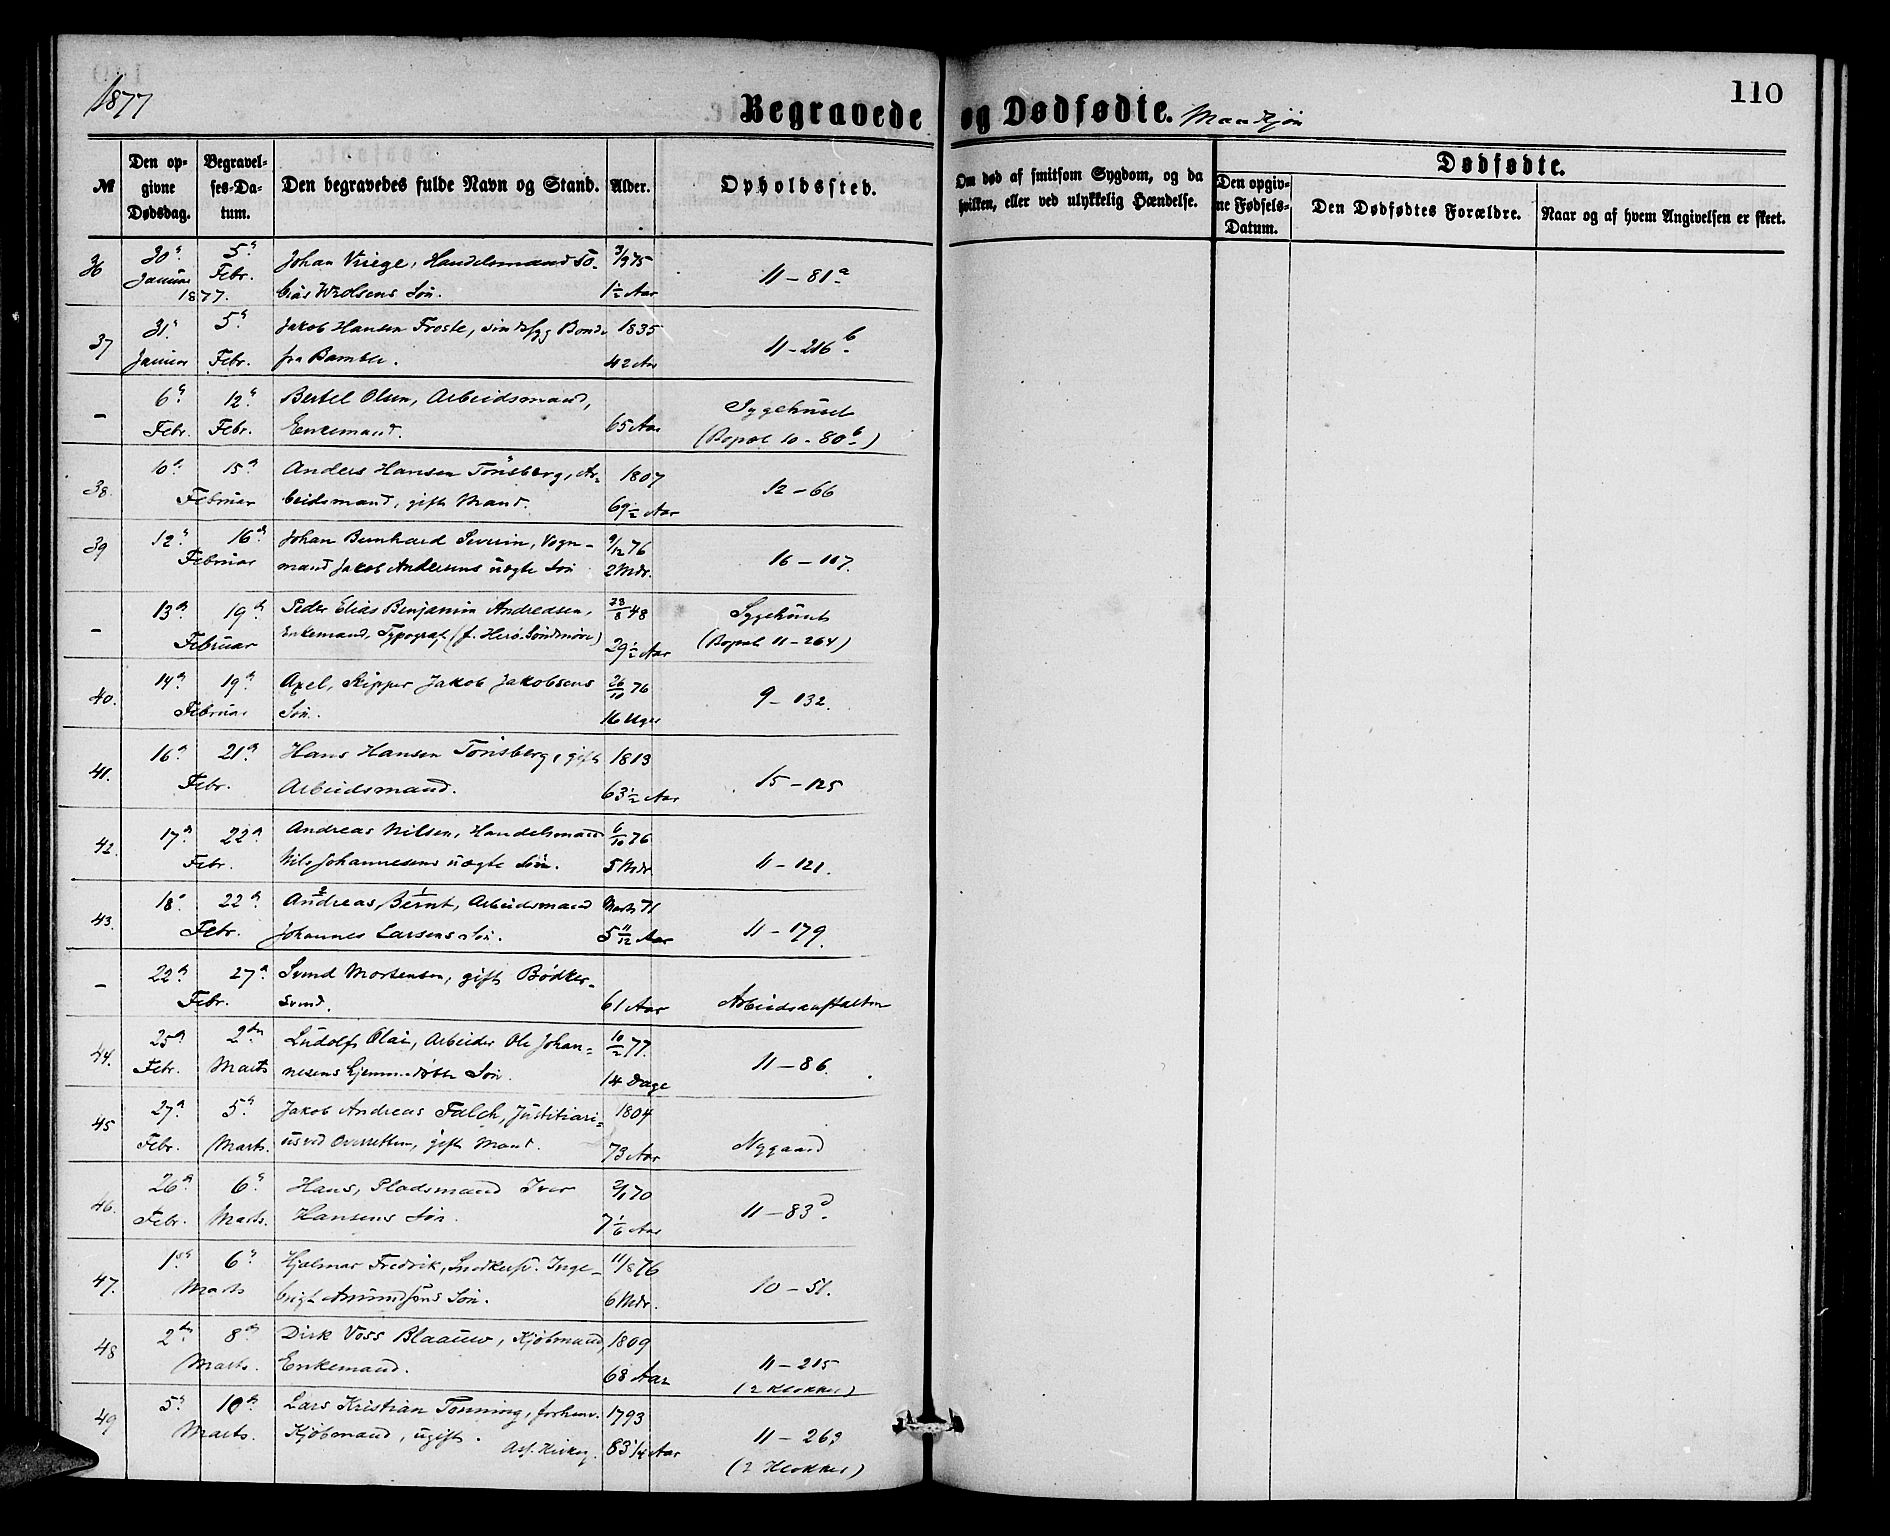 1877
Begravede og Dødfødte. Mandkjøn
110
№
Den opgivne Dødsdag.
Begravelses-Datum.
Den begravedes fulde Navn og Stand.
Alder.
Opholdssted.
Om død af smitsom Sygdom, og da hvilken, eller ved ulykkelig Hændelse.
Dødfødte.
Den opgivne Fødsels-Datum.
Den Dødfødtes Forældre.
Naar og af hvem Angivelsen er skeet.
36 30 5 Johan Vriege, Handelsmand To- 3/9 75
Januar Febr. bias Wedsens Søn. 1½ Aar 11-81a
1877.
37 31 5 Jakob Hansen Froste, sindssyg Bonde 1835
Januar Febr. fra Bamble. 42 Aar 11-216b
- 6 12 Bertel Olsen, Arbeidsmand, Sygehuset
Febr. Febr. Enkemand. 65 Aar (Bopæl 10-80b)
38. 10 15 Anders Hansen Tønsberg, Ar- 1807
Februar beidsmand, gift Mand. 69½ Aar 12-66
39 12 16 Johan Bernhard Severin, Vogn- 9/12 76
Februar mand Jakob Andersens uægte Søn 2 Mdr. 16-107.
- 13 19 Peder Elias Benjamin Andreasen, 23/8 48 Sygehuset
Februar Enkemand, Typograf (f. Herö. Söndmöre) 29½ Aar (Bopæl 11-264)
40. 14 19 Axel, Skipper Jakob Jakobsens 26/10 76
Februar Søn. 16 Uger 9-132.
41. 16 21 Hans Hansen Tønsberg, gift 1813
Febr. Arbeidsmand. 63½ Aar 15-125
42. 17 22 Andreas Nilsen, Handelsmand 6/10 76
Febr. Nils Johannesens uægte Søn. 5 Mdr. 11-121.
43. 18 22 Andreas, Bernt, Arbeidsmand Marts 71
Febr. Johannes Larsens Søn. 5 11/12 Aar 11-179.
- 22 27 Svend Mortensen, gift Bødker-
Febr. svend. 61 Aar Arbeidsanstalten
44. 25 2den Ludolf Olai, Arbeider Ole Johan- 10/2 77.
Febr. Marts nesens hjemmedøbte Søn. 14 Dage 11-86.
45 27 5 Jakob Andreas Falch, Justitiari- 1804
Febr. Marts. us ved Overretten, gift Mand. 73 Aar Nygaard
46. 26 6 Hans, Pladsmand Iver 2/1 70
Febr. Marts. Hansens Søn. 7 1/6 Aar 11-83d.
47. 1ste 6 Hjalmar Fredrik, Snedkersv. Inge- 11/8 76
Marts brigt Amundsens Søn. 6 Mdr. 10-51.
48 2den 8 Dirk Voss Blaauw, Kjøbmand, 1809
Marts. Enkemand. 68 Aar 11-215
(2 Klokker)
49 5 10 Lars Kristian Tønning, forhenv. 1793
Marts. Kjøbmand, ugift. 83 1/4 Aar 11-263
Ass. Kirkeg. (2 Klokker)